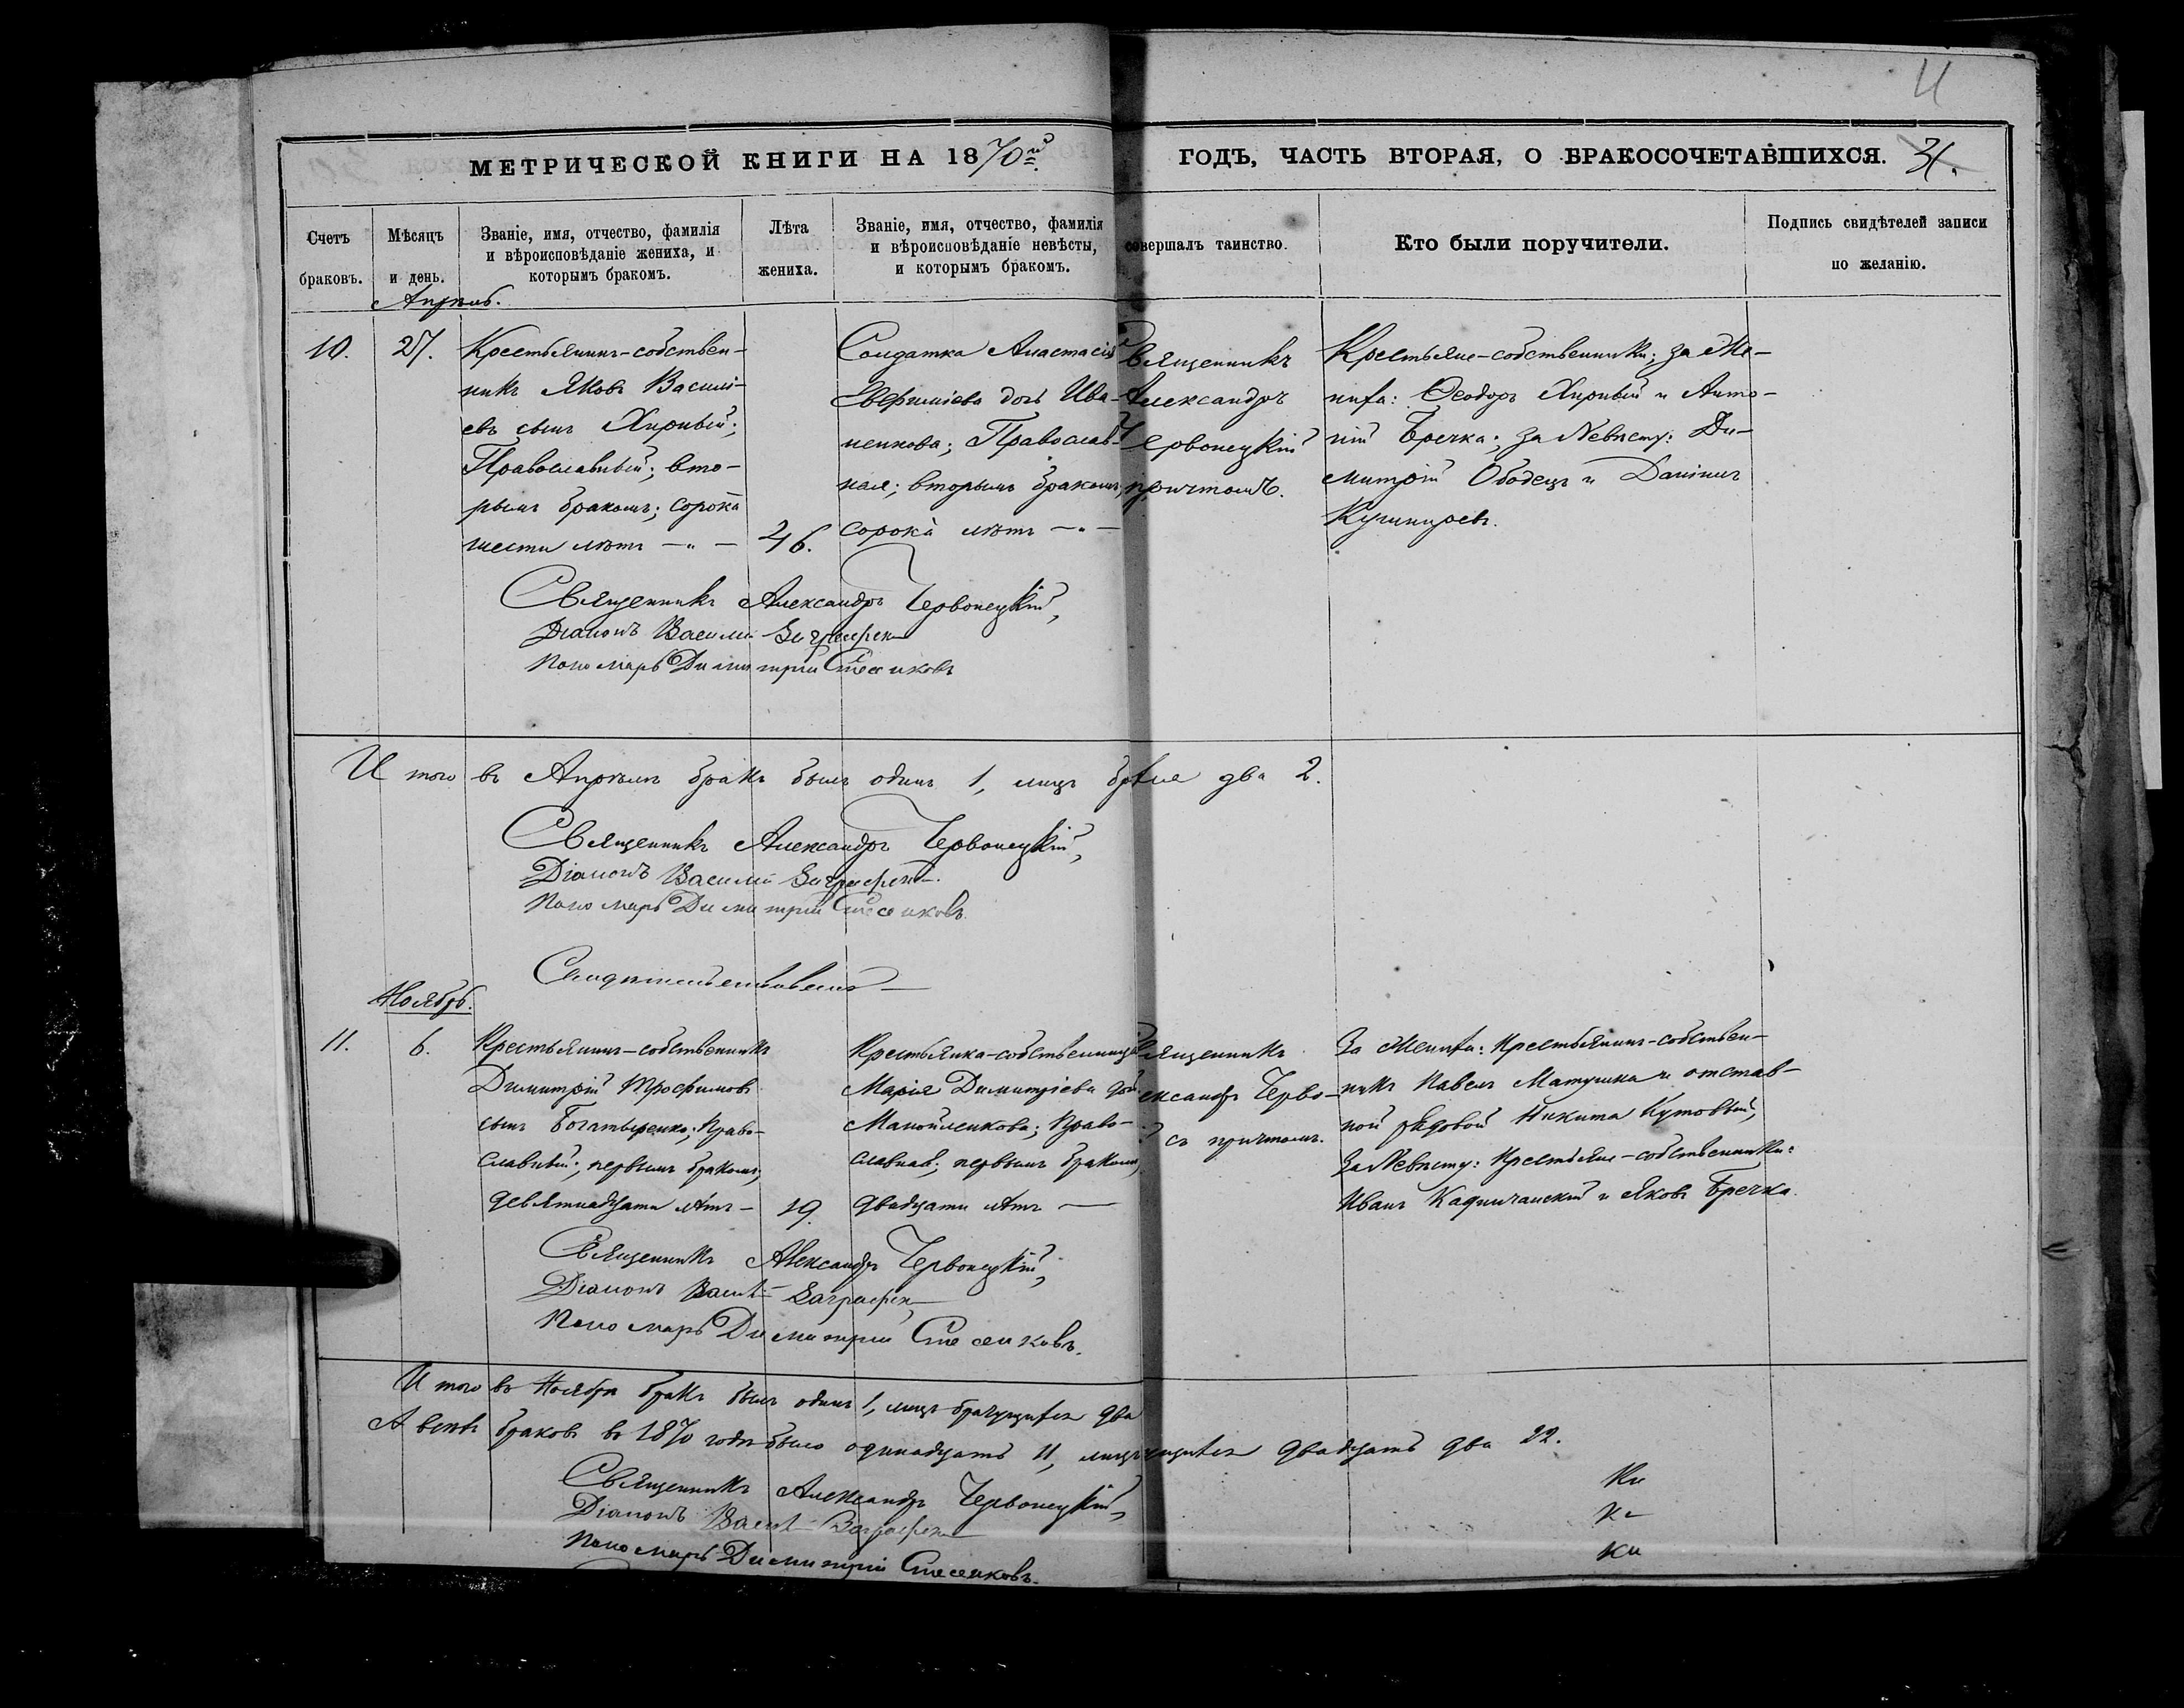 11
МЕТРИЧЕСКОЙ КНИГИ НА 1870й ГОДЪ, ЧАСТЬ ВТОРАЯ, О БРАКОСОЧЕТАВШИХСЯ. 31.
Счетъ браковъ.
Мѣсяцъ и день.
Званіе, имя, отчество, фамилія
и вѣроисповѣданіе жениха, и
которымъ бракомъ.
Лѣта
жениха.
Званіе, имя, отчество, фамилія
и вѣроисповѣданіе невѣсты,
и которымъ бракомъ.
совершалъ таинство.
Кто были поручители.
Подпись свидѣтелей записи
по желанію.
Апрѣль.
10.
27.
Крестьянинъ-собствен-
никъ Яковъ Василі-
евъ сынъ Хиривый;
Православный; вто-
рымъ бракомъ; сорока
шести лѣтъ
46.
Солдатка Анастасія
дочь Ива-
ненкова; Православ-
ная; вторымъ бракомъ,
сорока лѣтъ
Священникъ
Александръ
Червонецкій
причтомъ.
Крестьяне-собственники; за Же-
ниха: Ѳеодоръ Хиривый и Анто-
ній Бречка; за Невѣсту: Ди-
митрій Ободецъ и Даніилъ
Кушниревъ.
Священникъ Александръ Червонецкій,
Діаконъ Василій
Пономарь Димитрій Стесенковъ
И того въ Апрѣлѣ бракъ былъ одинъ 1, лицъ два 2.
Священникъ Александръ Червонецкій,
Діаконъ Василій
Пономарь Димитрій Стесенковъ
Ноябрь.
11.
6.
Крестьянинъ-собственникъ
Димитрій Трофимовъ
сынъ Богатыренко; Право-
славный; первымъ бракомъ;
девятнадцати лѣтъ
19.
Крестьянка-собственница
Марія Димитріева дочь
Манойленкова; Право-
славная; первымъ бракомъ,
двадцати лѣтъ
ященникъ
ександръ Черво-
съ причтомъ.
За Жениха: Крестьянинъ-собствен-
никъ Павелъ Матушка и отстав-
ной рядовой Никита Кутовый,
За Невѣсту: Крестьяне-собственники:
Иванъ Кадничанскій и Яковъ Бречка.
Священникъ Александръ Червонецкій,
Діаконъ
Пономарь Димитрій Стесенковъ.
И того въ Ноябрѣ бракъ былъ одинъ 1, лицъ брачущихся два
А всѣхъ браковъ въ 1870 годѣ было одинадцать 11, лицъ двадцать два 22.
Священникъ Александръ Червонецкій,
Діаконъ
Пономарь Димитрій Стесенковъ.